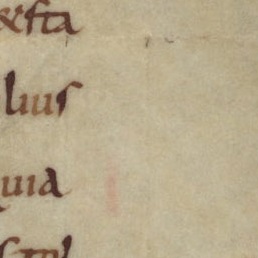 &sta
lius
uia